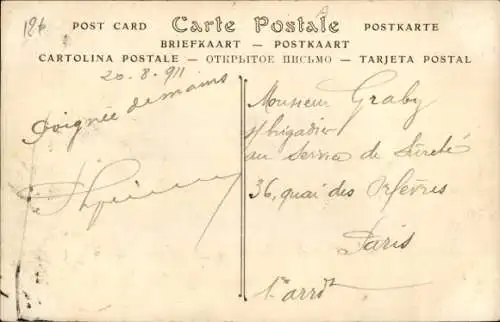 126
POST CARD Carte Postale POSTKARTE
BRIEFKAART — POSTKAART
CARTOLINA POSTALE — ОТКРЫТОЕ ПИСЬМО — TARJETA POSTAL
20.8.911
Poignée de mains
Monsieur Graby
s/brigadier
au Service de Sûreté
36, quai des Orfèvres
Paris
1er arrdt